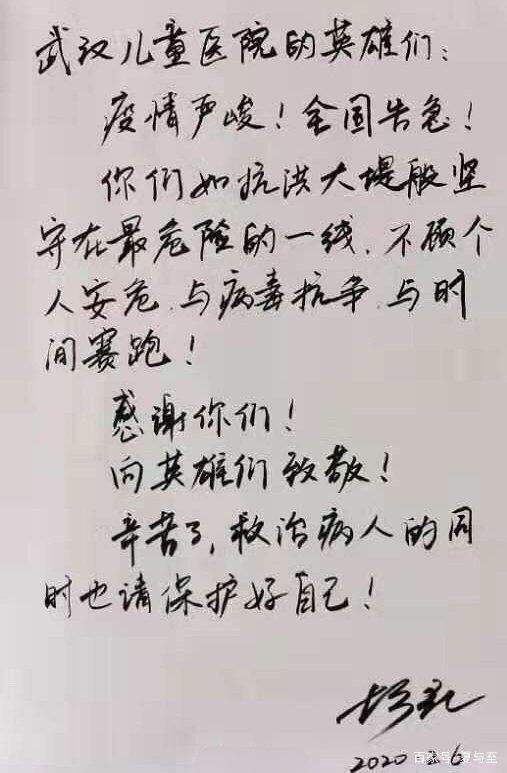 武汉儿童医院的英雄们：
疫情严峻！全国告急！
你们如抗洪大堤般坚
守在最危险的一线，不顾个
人安危，与病毒抗争，与时
间赛跑！
感谢你们！
向英雄们致敬！
辛苦了，救治病人的同
时也请保护好自己！
百家号/夏与至
2020